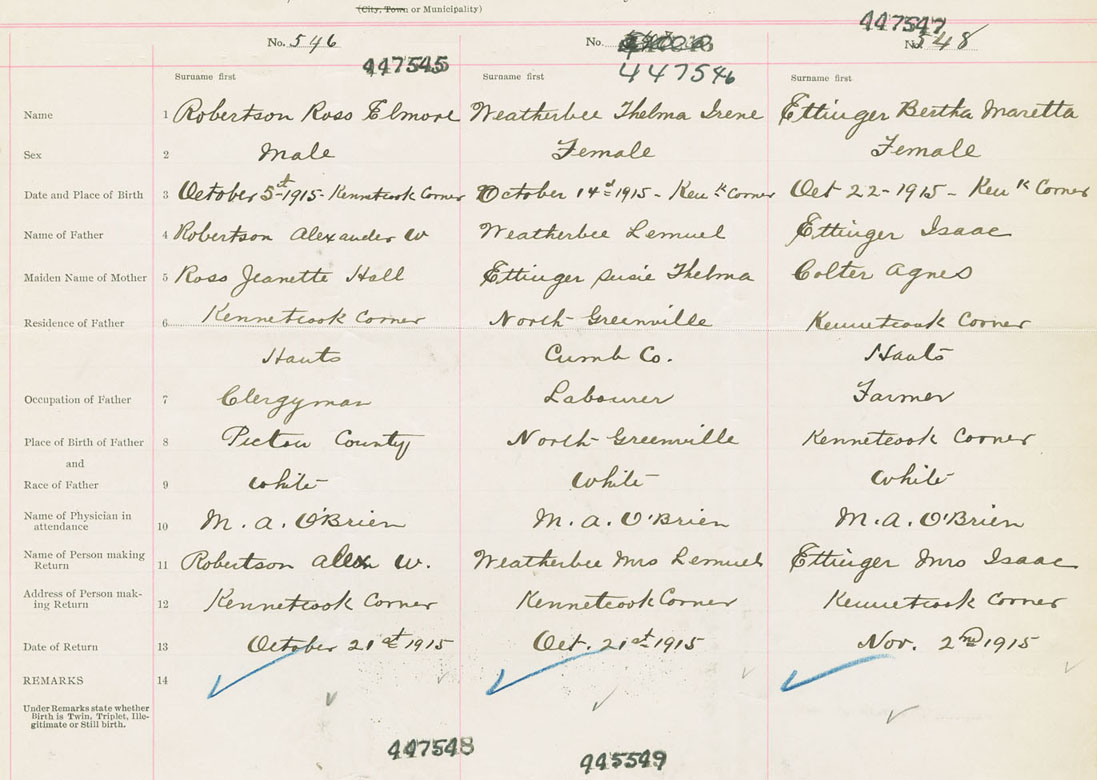 (City, Town or Municipality)
447547
No. 546 No. No. 548
447545 447546
Surname first Surname first Surname first
Name 1 Robertson Ross Elmore Weatherbee Thelma Irene Ettinger Bertha Maretta
Sex 2 Male Female Female
Date and Place of Birth 3 October 5st 1915 - Kennetcook Corner October 14d 1915 - Ken k Corner Oct 22 - 1915 - Ken k Corner
Name of Father 4 Robertson Alexander W Weatherbee Lemuel Ettinger Isaac
Maiden Name of Mother 5 Ross Jeanette Hall Ettinger Susie Thelma Colter Agnes
Residence of Father 6 Kennetcook Corner North Greenville Kennetcook Corner
Hants Cumb Co. Hants
Occupation of Father 7 Clergyman Labourer Farmer
Place of Birth of Father 8 Pictou County North Greenville Kennetcook Corner
and
Race of Father 9 White White White
Name of Physician in
attendance 10 M. A. O'Brien M. A. O'Brien M. A. O'Brien
Name of Person making
Return 11 Robertson Alex W. Weatherbee Mrs Lemuel Ettinger Mrs Isaac
Address of Person mak-
ing Return 12 Kennetcook Corner Kennetcook Corner Kennetcook Corner
Date of Return 13 October 21st 1915 Oct. 21st 1915 Nov. 2nd 1915
REMARKS 14
Under Remarks state whether
Birth is Twin, Triplet, Ille-
gitimate or Still birth.
447548 445549